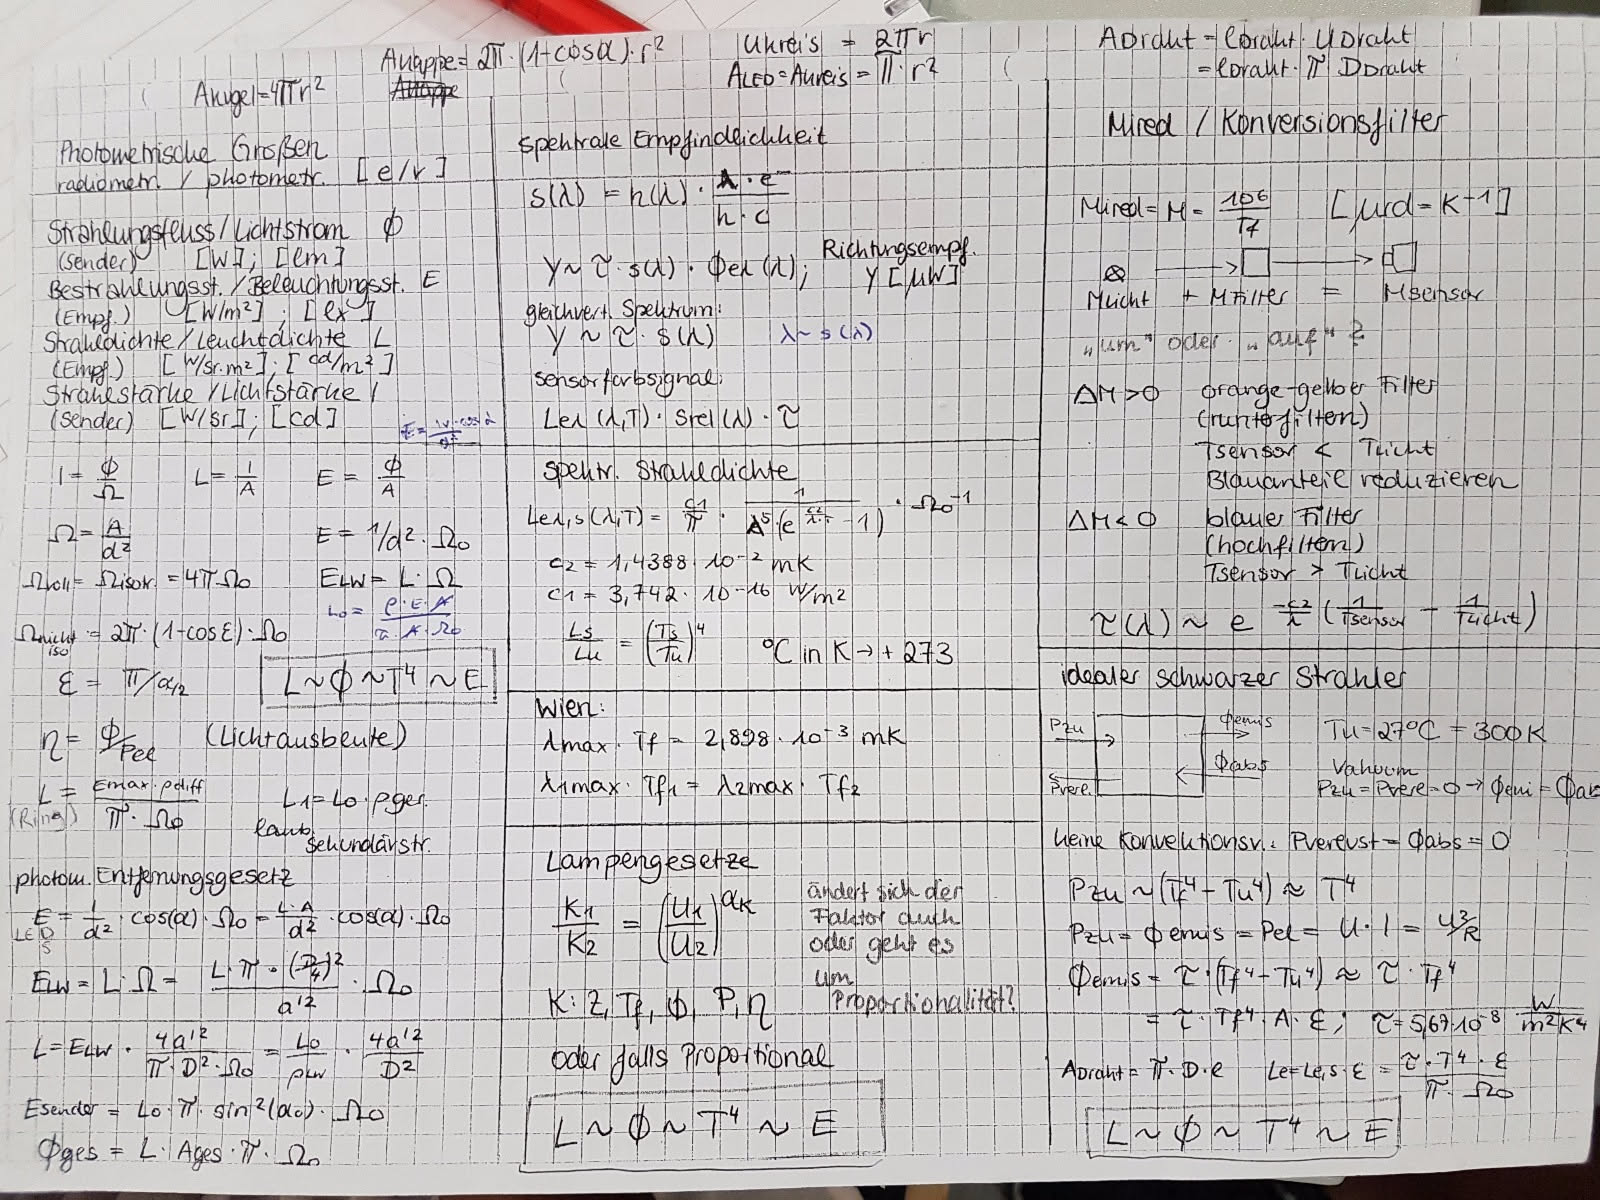 AKugel=4πr²
AKappe=2π·(1+cosα)·r²
Ukreis = 2πr
ALED=AKreis=π·r²
ADraht = lDraht·UDraht
=lDraht·π DDraht
Photometrische Größen
radiometr. / photometr. [e/v]
Strahlungsfluss/Lichtstrom Φ
(Sender) [W]; [lm]
Bestrahlungsst./Beleuchtungsst. E
(Empf.) [W/m²]; [lx]
Strahldichte/Leuchtdichte L
(Empf.) [W/sr·m²]; [cd/m²]
Strahlstärke/Lichtstärke I
(Sender) [W/sr]; [cd]
I = Φ/Ω L = I/A E = Φ/A
Ω = A/d² E = I/d²·Ω₀
Ωvoll = Ωisotr. = 4π·Ω₀ ELW = L·Ω
L₀ = ρ·E·A / π·A·Ω₀
Ωnicht iso = 2π·(1-cosε)·Ω₀
ε = π/α/2 L~Φ~T⁴~E
η = Φ/Pel (Lichtausbeute)
L = Emax·ρdiff / π·Ω₀
(Ring)
L1=L₀·ρger.
Sekundärstr.
photom. Entfernungsgesetz
E = I/d²·cos(α)·Ω₀ = L·A/d²·cos(α)·Ω₀
LEDs
ELW = L·Ω = L·π·(D/4)² / a'²·Ω₀
L = ELW·4a'²/π·D²·Ω₀ = L₀/ρLW·4a'²/D²
Esender = L₀·π·sin²(α₀)·Ω₀
Φges = L·Ages·π·Ω₀
spektrale Empfindlichkeit
s(λ) = η(λ)·λ·e / h·c
Y~τ·s(λ)·Φeλ(λ); Richtungsempf.
Y[μW]
gleichvert. Spektrum:
Y ~ τ·s(λ) λ~s(λ)
Sensorfarbsignal:
Leλ(λ,T)·srel(λ)·τ
spektr. Strahldichte
Leλ,s(λ,T) = c1/π·1/λ⁵(e^(c2/λ·T)-1)·Ω₀⁻¹
c2 = 1,4388·10⁻² mK
c1 = 3,742·10⁻¹⁶ W/m²
Ls/Lu = (Ts/Tu)⁴ °C in K → + 273
Wien:
λmax·Tf = 2,898·10⁻³ mK
λ1max·Tf1 = λ2max·Tf2
Lampengesetze
K1/K2 = (U1/U2)^αK
ändert sich der
Faktor auch
oder geht es
um
Proportionalität?
K: Z, Tf, Φ, P, η
oder falls Proportional
L~Φ~T⁴~E
Mired / Konversionsfilter
Mired = M = 10⁶/Tf [μrd=K⁻¹]
MLicht + MFilter = MSensor
„um" oder „auf" ?
ΔM>0 orange-gelber Filter
(runterfiltern)
TSensor < TLicht
Blauanteile reduzieren
ΔM<0 blauer Filter
(hochfiltern)
TSensor > TLicht
τ(λ) ~ e^(-c2/λ (1/TSensor - 1/TLicht))
idealer schwarzer Strahler
Pzu Φemis Tu=27°C = 300K
Φabs Vakuum
Pverl. Pzu=Pverl=0→Φemi=Φab
keine Konvektionsv.: Pverlust = Φabs = 0
Pzu ~(Tf⁴-Tu⁴) ≈ T⁴
Pzu = Φemis = Pel = U·I = U²/R
Φemis = τ·(Tf⁴-Tu⁴) ≈ τ·Tf⁴
= τ·Tf⁴·A·ε; τ=5,67·10⁻⁸ W/m²K⁴
ADraht = π·D·l Le=Le,s·ε = τ·T⁴·ε / π·Ω₀
L~Φ~T⁴~E